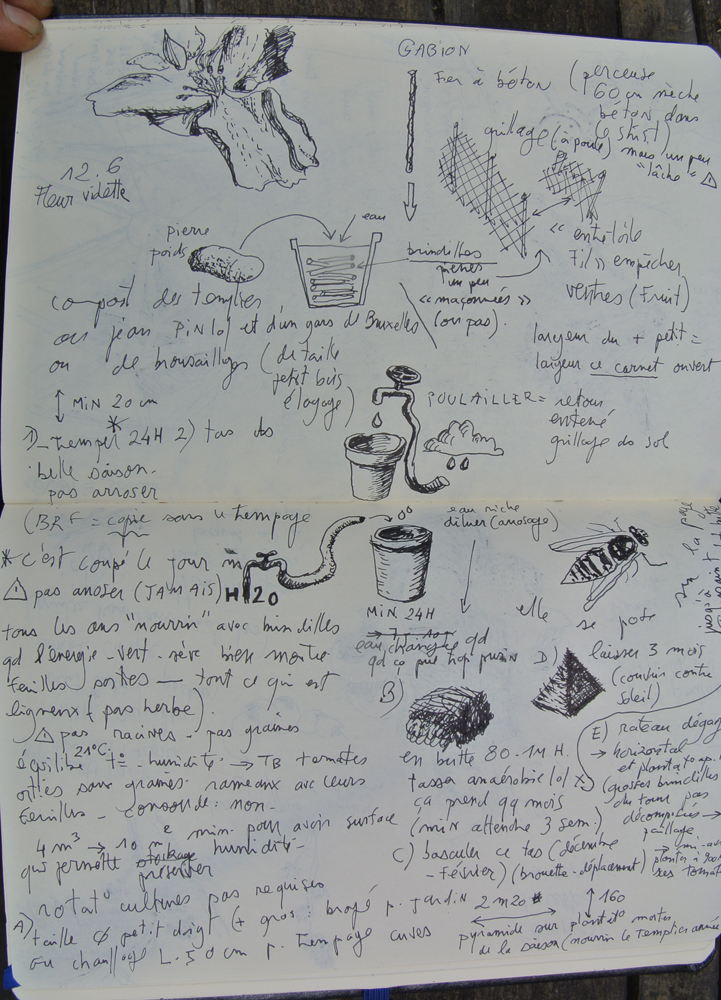 GABION
Fer à béton (perceuse
60 cm mèche
béton dans
grillage (à poule) mais un peu
"lâche" ⚠
12.6
Fleur vidette
eau
pierre
poids
brindilles
un peu
<< maçonnées >>
(ou pas).
<< entretoile
Fil >> empêcher
ventres (Fruit)
compost des templiers
ou jean PiN lol et d'un gars de Bruxelles
ou de broussailles (de taille
petit bois
élagage)
largeur du + petit =
largeur ce carnet ouvert
MiN 20 cm
POULAILLER = retour
enterré
grillage du sol
1) tremper* 24H 2) tas dès
belle saison.
pas arroser
(BRF = copie sans le trempage
eau riche
diluer (arrosage)
* c'est coupé le jour m
⚠ pas arroser (JAMAIS)
H2O
MiN 24H
elle se pose
sur la page
tous les ans "nourrir" avec brindilles
qd l'énergie - vert - sève bien montée
feuilles sorties — tout ce qui est
ligneux (pas herbe).
⚠ pas racines - pas graines
eau changée qd
qd ça pue trop purin
D) laisser 3 mois
(couvrir contre
soleil)
B)
équilibre 21°C t° - humidité → TB tomates
orties sans graines. rameaux avec leurs
feuilles - consoude: non -
en butte 80 - 1M H.
tasser anaérobie lol
ça prend qq mois
(min attendre 3 sem.)
E) rateau dégag
→ horizontal
et plantat°
(grosses brindilles
du tour pas
décomposées →
paillage
4 m³ → 10 m² min. pour avoir surface
qui permette stockage humidité -
préserver
C) basculer ce tas (décembre
- février) (brouette - déplacement)
ses tomat
rotat° cultures pas requises
A) taille ∅ petit doigt (+ gros: broyé p. jardin
ou chauffage L. 50 cm p. trempage cuves
2m20
160
pyramide sur plantat° mortes
de la saison (nourrir le templier année